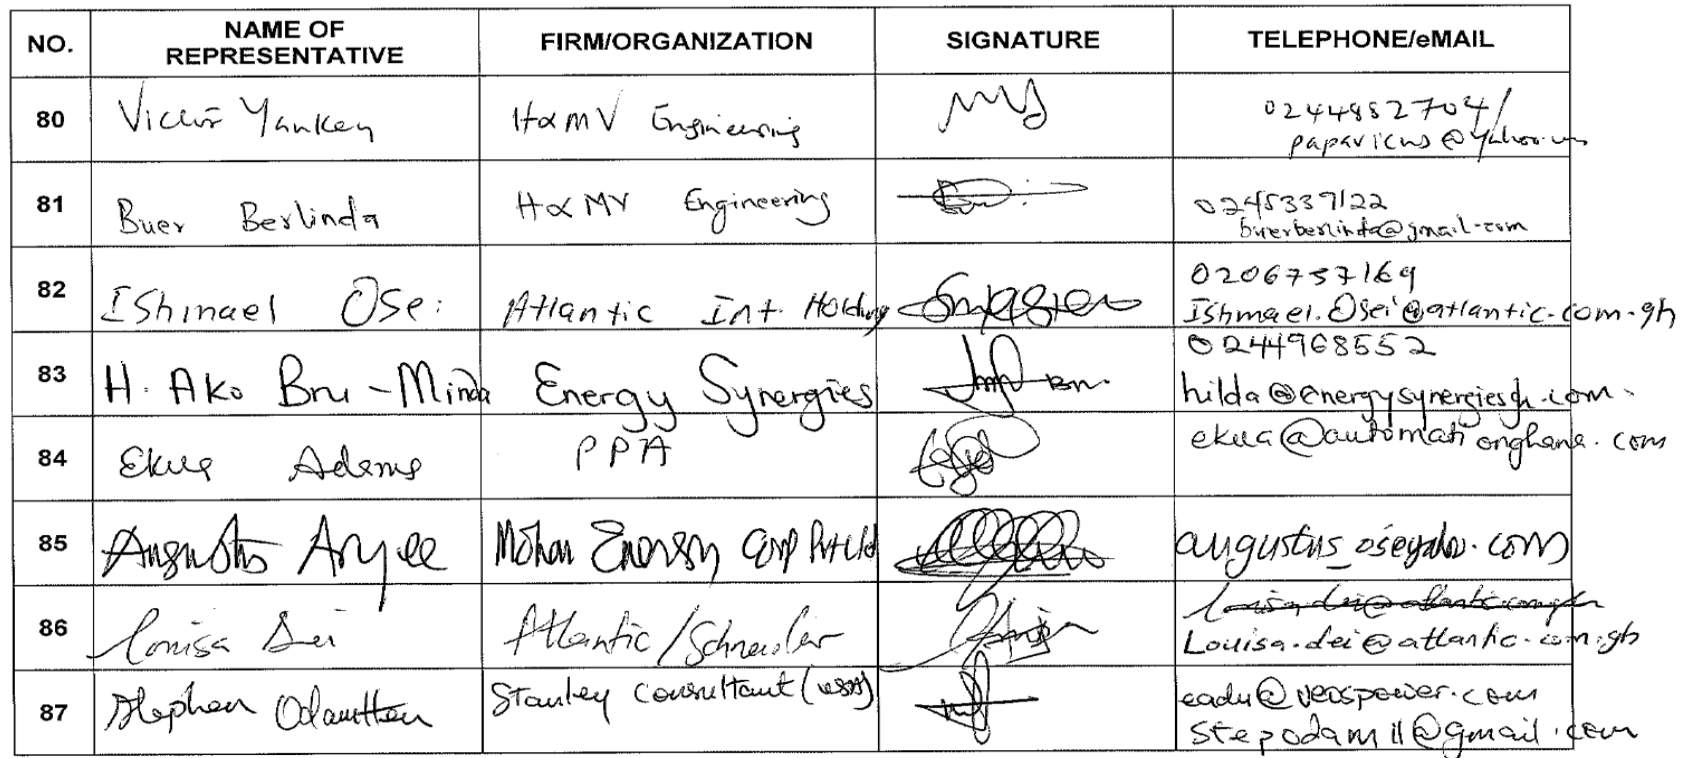 NO. NAME OF REPRESENTATIVE FIRM/ORGANIZATION SIGNATURE TELEPHONE/eMAIL
80 Victor Yankey H&MV Engineering 0244882704/
papavicus@yahoo.com
81 Buer Berlinda H&MV Engineering 0245339122
buerberlinda@gmail.com
82 Ishmael Osei Atlantic Int. Holding 0206737169
Ishmael.Osei@atlantic.com.gh
83 H. Ako Bru-Minda Energy Synergies 0244968552
hilda@energysynergiesgh.com.
84 Ekua Adams PPA ekua@automationghana.com
85 Augustus Aryee Mohan Energy Corp Pvt Ltd
86 Louisa Dei Atlantic/Schneider louisa.dei@atlantic.com.gh
Louisa.dei@atlantic.com.gh
87 Stephen Odamtten Stanley Consultant (USA) eadu@veospower.com
stepodam11@gmail.com